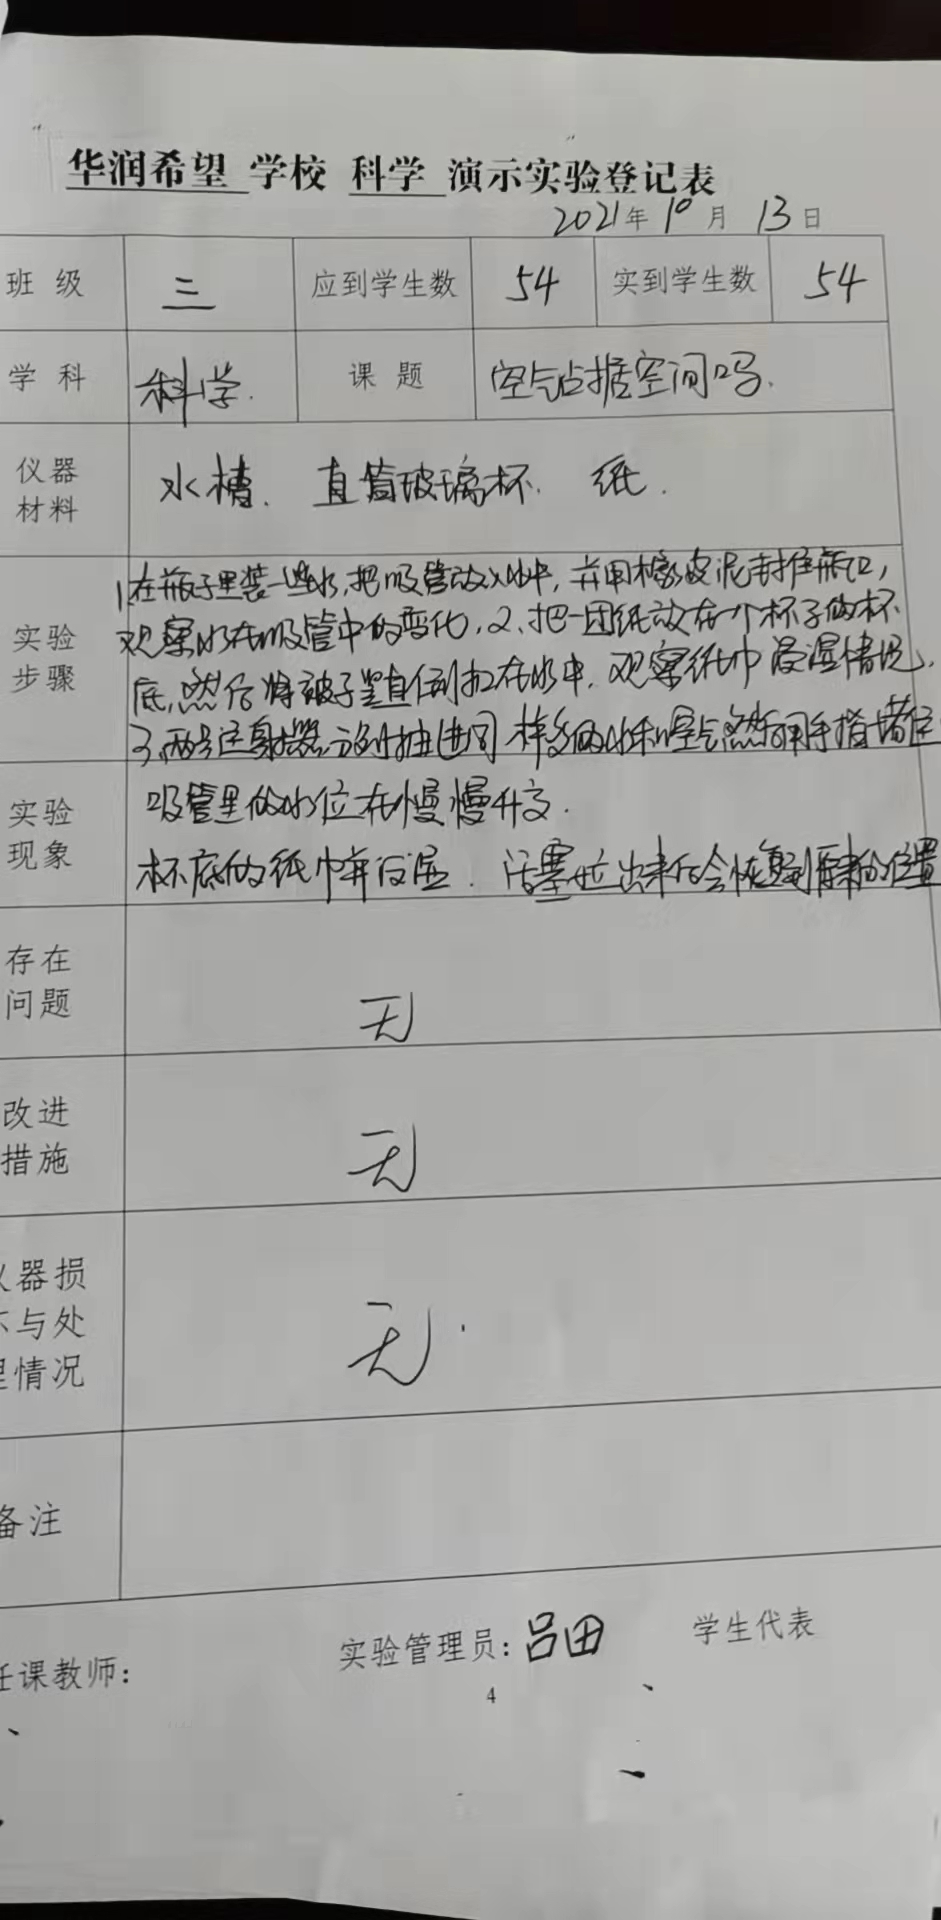 华润希望 学校 科学 演示实验登记表
2021年 10月 13日
班级 三 应到学生数 54 实到学生数 54
学科 科学. 课题 空气占据空间吗.
仪器
材料
水槽. 直筒玻璃杯. 纸.
实验
步骤
1、在瓶子里装一些水,把吸管放入水中,并用橡皮泥封住瓶口,
观察水在吸管中的变化,2、把一团纸放在一个杯子的杯
底,然后将被子竖直倒扣在水中.观察纸巾浸湿情况.
3、两号注射器分别抽进同样多的水和空气然后用手指堵住
实验
现象
吸管里的水位在慢慢升高.
杯底的纸巾并没湿.活塞拉出来后会恢复到原来的位置
存在
问题
无
改进
措施
无
器损
与处
情况
无.
备注
任课教师: 实验管理员:吕田 学生代表
4